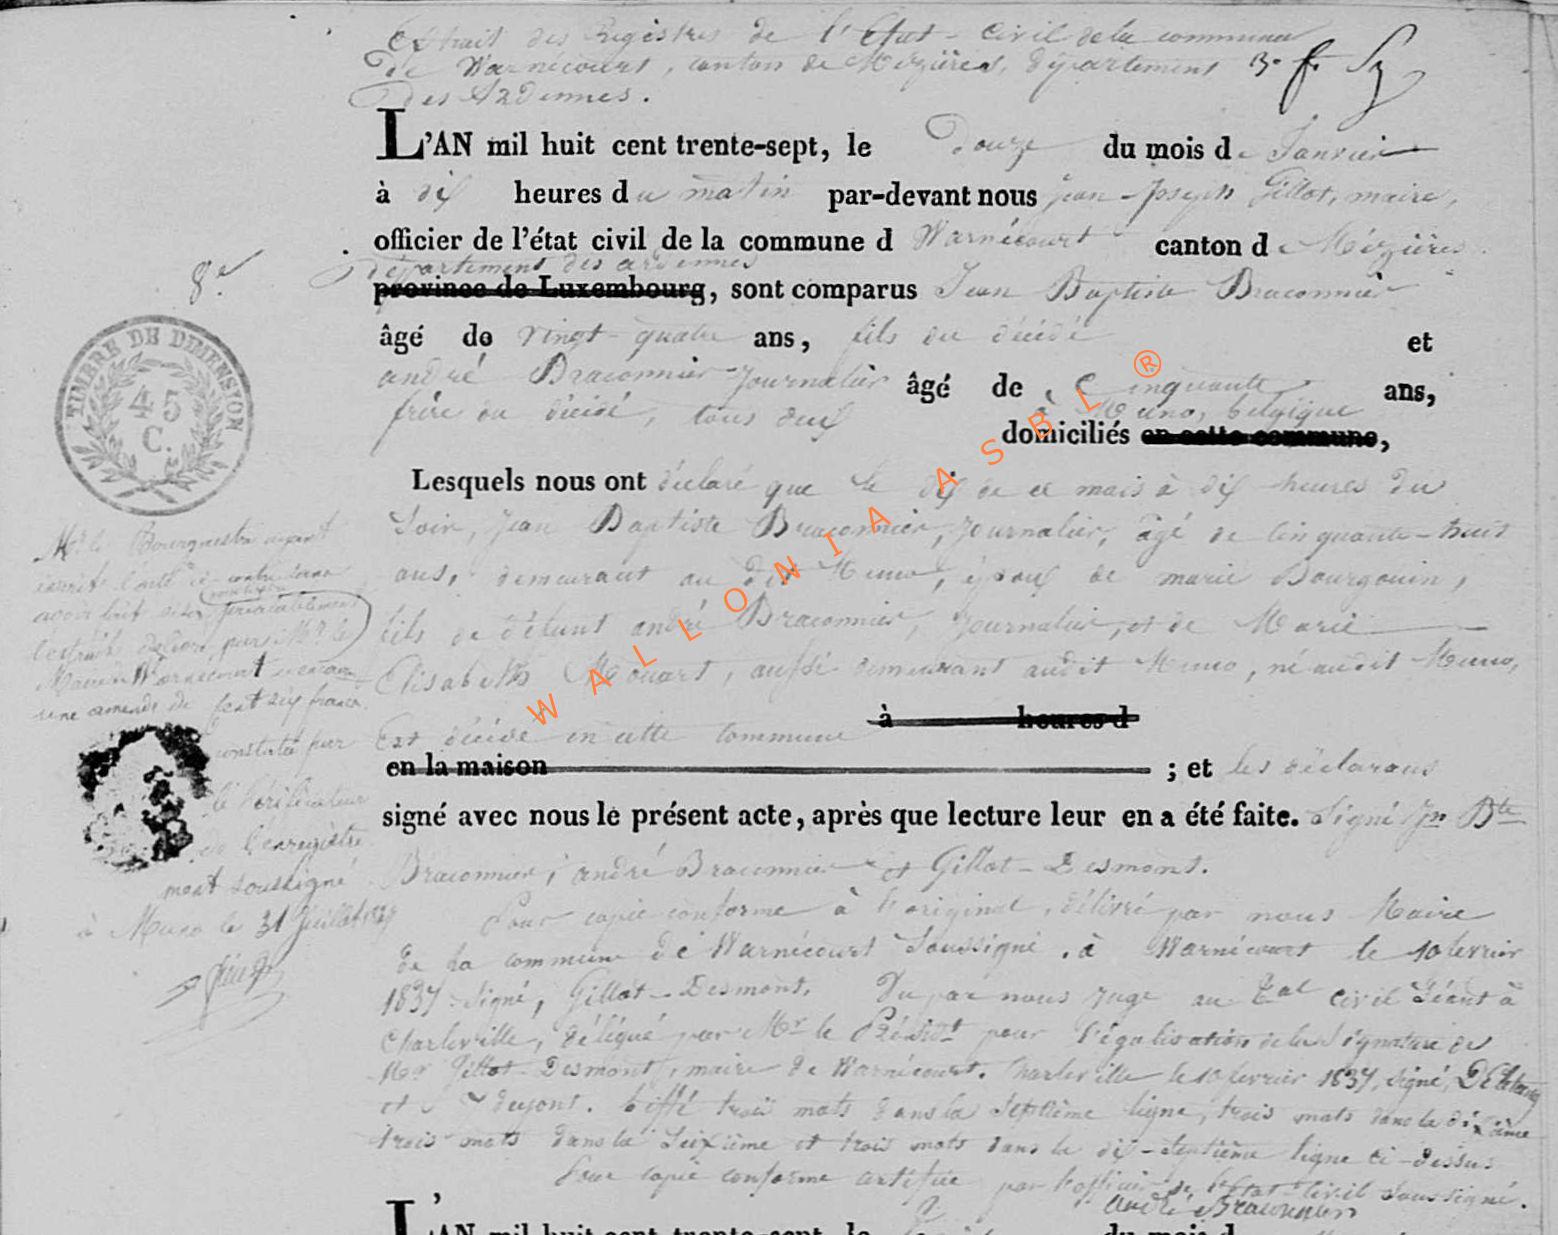 Extrait des Registres de l'Etat-Civil de la commune
De Warnécourt, canton de Mézières, département
Des Ardennes.
L'AN mil huit cent trente-sept, le Douze du mois de Janvier
à dix heures du matin par-devant nous jean-Joseph Gillot, maire,
officier de l'état civil de la commune d Warnécourt canton de Mézières
département des ardennes
province de Luxembourg, sont comparus Jean Baptiste Braconnier
âgé de vingt-quatre ans, fils du décédé et
andré Braconnier journalier âgé de Cinquante ans,
à Muno, belgique
frère du décédé, tous deux domiciliés en cette commune,
Lesquels nous ont déclaré que le dix de ce mois à dix heures du
Soir, Jean Baptiste Braconnier, journalier, âgé de Cinquante-huit
ans, demeurant au dit Muno, époux de marie Bourgouin,
fils de défunt andré Braconnier, journalier, et de Marie
Elisabeth Mouart, aussi demeurant audit Muno, né audit Muno,
Est décédé en cette commune à heures d
en la maison ; et les déclarans
signé avec nous le présent acte, après que lecture leur en a été faite. Signé Jn Bte
Braconnier, andré Braconnier et Gillot-Desmont.
Pour copie conforme à l'original, délivré par nous Maire
de la commune de Warnécourt Soussigné. à Warnécourt le 10 fevrier
1837. Signé, Gillot-Desmont. Vu par nous juge au Bal civil Séant à
Charleville, délégué par Mr le Présidt pour légalisation de la Signature de
Mr Gillot-Desmont, maire de Warnécourt. Charleville le 10 fevrier 1837, Signé,
et biffé trois mots dans la Septième ligne, trois mots dans la dixième
trois mots dans la Seixième et trois mots dans la dix-Septième ligne ci-dessus
Pour copie conforme certifiée par l'officier de l'Etat-Civil Soussigné.
andré Braconnier
L'AN mil huit cent trente-sept, le du mois d
8e
TIMBRE DE DIMENSION
45
C.
Mr le Bourgmestre ayant
inscrit l'acte ci-contre sans
avoir fait viser préalablement
l'extrait délivré par Mr le
Maire de Warnécourt encourt
une amende de
constatée par
le Vérificateur
de l'enregistre
ment soussigné
à Muno le 31 Juillet
WALLONIA ASBL ®